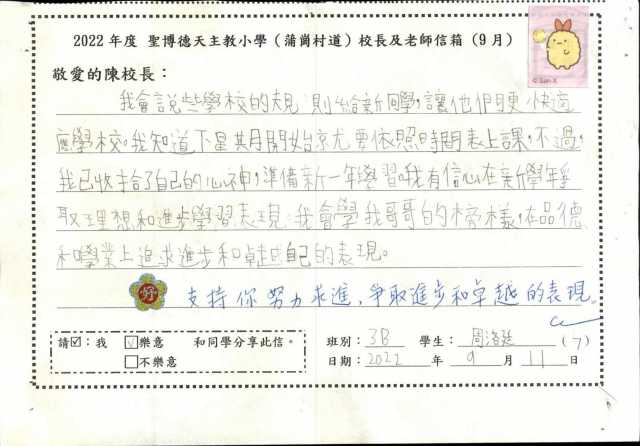 2022 年度 聖博德天主教小學（蒲崗村道）校長及老師信箱（9月）
敬愛的陳校長：
我會說些學校的規則給新同學，讓他們更快適
應學校。我知道下星期開始京尤要依照時間表上課，不過，
我已收拾了自己的心神，準備新一年學習。我有信心在新學年爭
取理想和進步學習表現。我會學我哥哥的榜樣，在品德
和學業上追求進步和卓越自己的表現。
好 支持你努力求進，爭取進步和卓越的表現。
請☑：我 ☑樂意 和同學分享此信。 班別：3B 學生：周洛廷 (7)
□不樂意 日期：2022 年 9 月 11 日